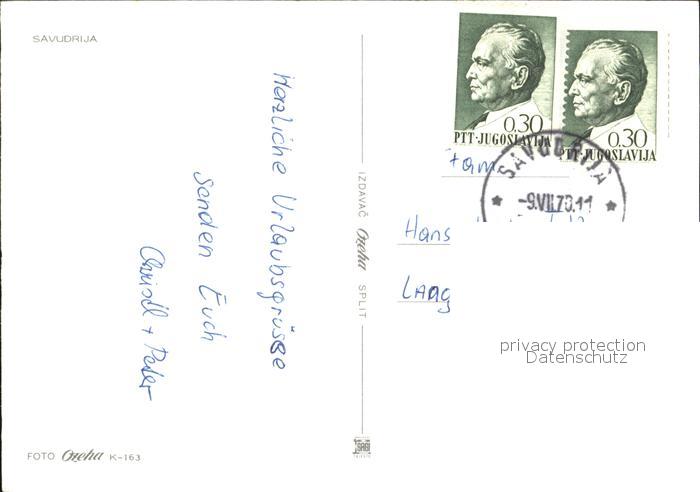 SAVUDRIJA
Herzliche Urlaubsgrüsse
senden Euch
Christl + Peter
FOTO Ozeha K-163
IZDAVAČ Ozeha SPLIT
0.30
PTT·JUGOSLAVIJA
0.30
PTT·JUGOSLAVIJA
SAVUDRIJA
-9.VII.70.11
Fam
Hans
Laag
privacy protection
Datenschutz